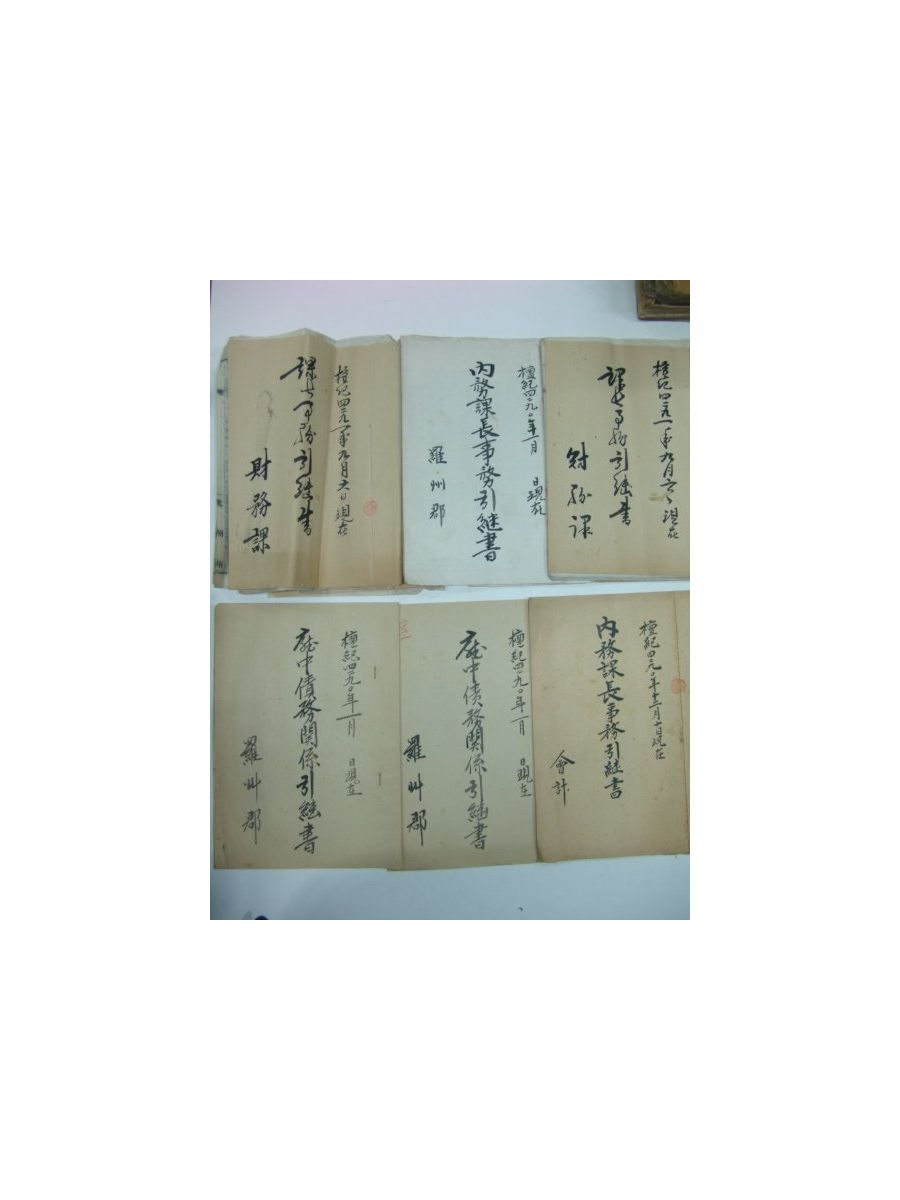 檀紀四二九一年九月六日現在
課長事務引継書
財務課
檀紀四二九〇年一月 日現在
内務課長事務引継書
羅州郡
檀紀四二九一年九月六日現在
課長事務引継書
財務課
檀紀四二九〇年一月 日現在
庁中債務関係引継書
羅州郡
檀紀四二九〇年一月 日現在
庁中債務関係引継書
羅州郡
檀紀四二九〇年十二月十日現在
内務課長事務引継書
會計